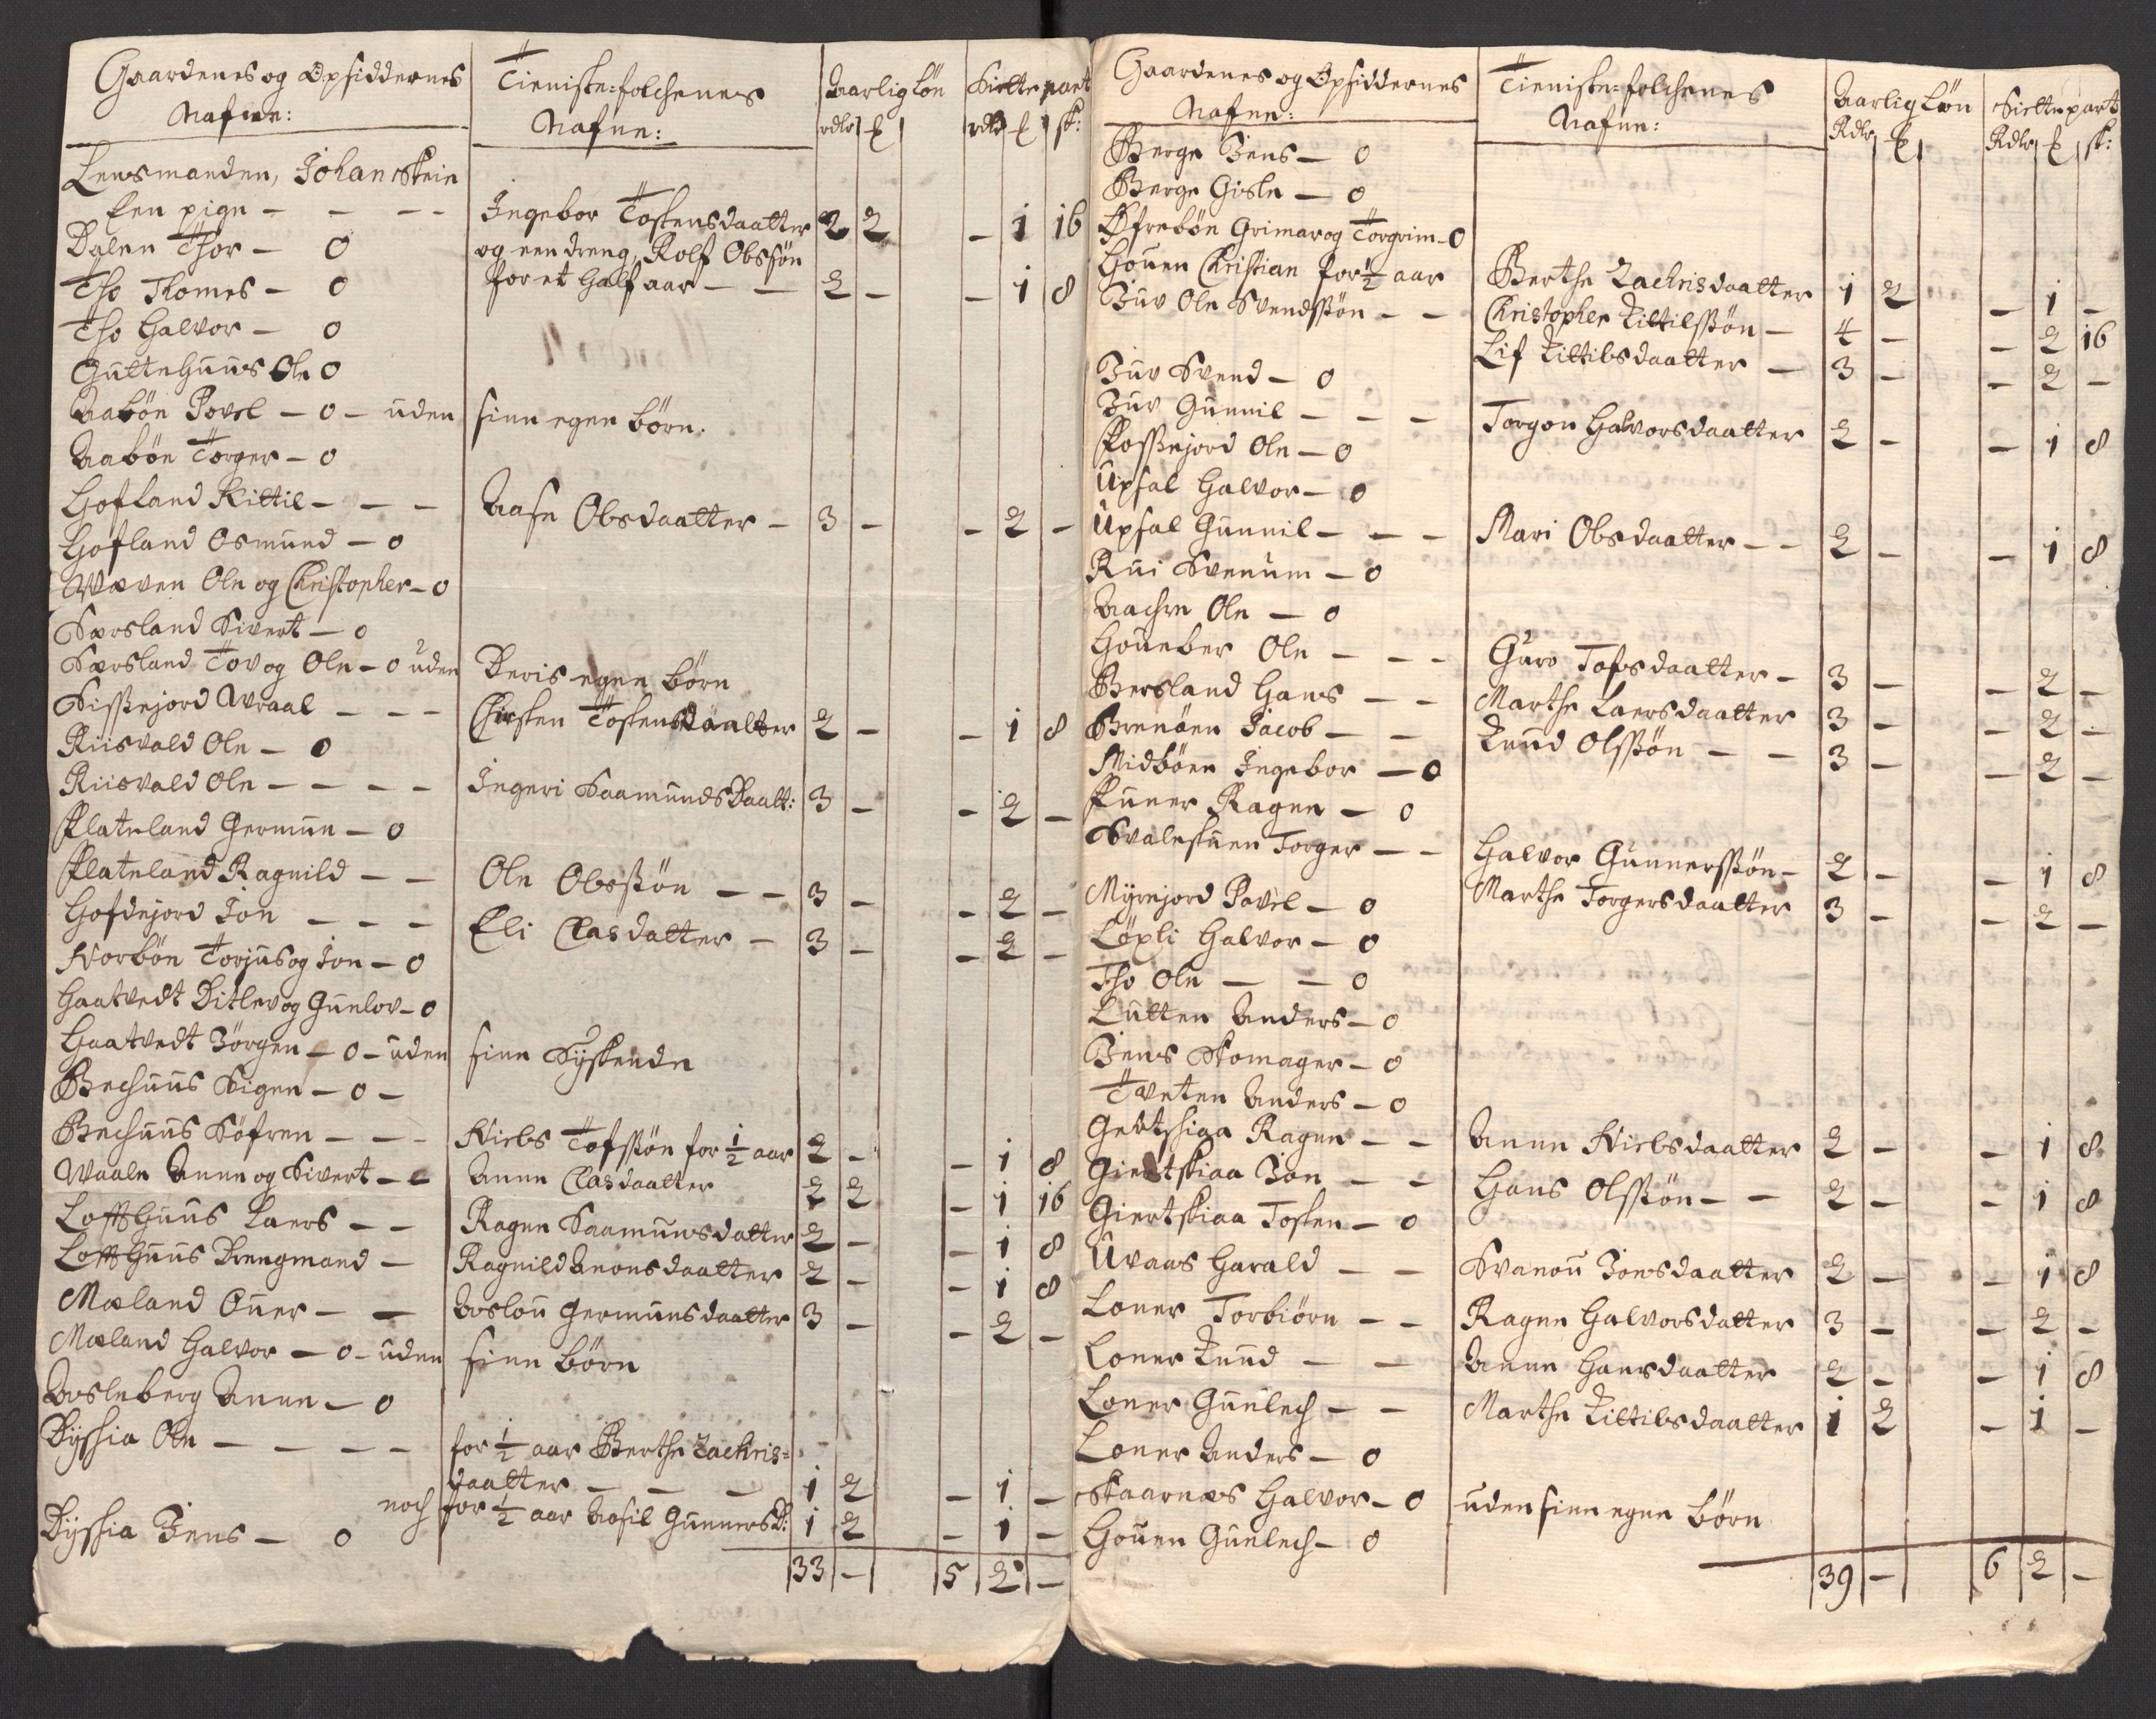 Gaardenes og Opsiddernes Nafne: | Tieniste-folchenes Nafne: | Aarlig løn rdlr £ | Siette part rdlr £ sk:
Lensmanden, Johan Skein
Een pige - - - - | Ingebor Tostensdaatter | 2 2 | - 1 16
Dalen Thor - 0 | og een dreng, Rolf Olsøn
Tho Thomes - 0 | for et halft aar - - | 2 - | - 1 8
Tho Halvor - 0
Gutte huus Ole 0
Aabøn Povel - 0 - uden | sinne egene børn.
Aabøn Torger - 0
Hofland Kittil - - - | Aase Olsdaatter - | 3 - | - 2 -
Hofland Osmund - 0
Waven Ole og Christopher - 0
Norsland Sivert - 0
Norsland Tov og Ole - 0 uden | Deris egne børn
Sissejord Wraal - - - | Chirsten Tostensdaatter | 2 - | - 1 8
Riisvald Ole - 0
Riisvald Ole - - - - | Ingeri Saamunds Daatt: | 3 - | - 2 -
Flateland Germun - 0
Flateland Ragnild - - | Ole Olsøn - - | 3 - | - 2 -
Hofdejord Jon - - - | Eli Clasdatter - | 3 - | - 2 -
Norbøn Torjus og Jon - 0
Haatvedt Ditlev og Gunlov - 0
Haatvedt Jørgen - 0 - uden | sinne Syskende
Bechuus Sigen - 0 -
Bechuus Søfren - - - | Niels Tofssøn for ½ aar | 2 - | - 1 8
Waale Anne og Sivert - - | Anne Clasdaatter | 2 2 | - 1 16
Loftshuus Laers - - | Ragne Saamunsdatter | 2 - | - 1 8
Loftshuus Drengmand - | Ragnild Anonsdaatter | 2 - | - 1 8
Mæland Ouer - - | Aaslou Germunsdaatter | 3 - | - 2 -
Mæland Halvor - 0 - uden | sinne børn
Aasleberg Anne - 0
Dyshia Ole - - - - | for ½ aar Berthe Zachris-
daatter - - - | 1 2 | - 1 -
noch for ½ aar Aasil Gunnersd: | 1 2 | - 1 -
Dyshia Jens - 0
33 - | 5 2 -
Gaardenes og Opsiddernes Nafne: | Tieniste-folchenes Nafne: | Aarlig Løn Rdlr £ | Siette part Rdlr £ sk:
Berge Jens - 0
Berge Gisle - 0
Øfrebøn Grimar og Torgrim - 0
Houen Christian for ½ aar | Berthe Zachrisdaatter | 1 2 | - 1 -
Juv Ole Svendssøn - - | Christopher Kittilssøn - | 4 - | - 2 16
Lif Kittilsdaatter - | 3 - | - 2 -
Juv Svend - 0
Juv Gunnil - - - | Torgon Halvorsdaatter | 2 - | - 1 8
Fossejord Ole - 0
Upsal Halvor - 0
Upsal Gunnil - - - | Mari Olsdaatter - - | 2 - | - 1 8
Rui Svenum - 0
Aachre Ole - 0
Houeber Ole - - - | Guro Tofsdaatter - | 3 - | - 2 -
Bersland Hans - - | Marthe Laersdaatter | 3 - | - 2 -
Brenøen Jacob - - | Knud Olssøn - - | 3 - | - 2 -
Midbøen Ingebor - 0
Funer Ragne - 0
Svalestuen Torger - - | Halvor Gunnerssøn - | 2 - | - 1 8
Marthe Torgersdaatter | 3 - | - 2 -
Myrejord Pavel - 0
Løpli Halvor - 0
Tho Ole - - 0
Lutten Anders - 0
Jens Skomager - 0
Tveten Anders - 0
Giertshiaa Ragne - - | Anne Nielsdaatter | 2 - | - 1 8
Giertskiaa Jon - - | Hans Olssøn - - | 2 - | - 1 8
Giertskiaa Tosten - 0
Uvaas Harald - - | Svanou Jonsdaatter | 2 - | - 1 8
Loner Torbiørn - - | Ragne Halvorsdatter | 3 - | - 2 -
Loner Knud - - | Anne Hansdaatter | 2 - | - 1 8
Loner Gunlech - - | Marthe Kittilsdaatter | 1 2 | - 1 -
Loner Anders - 0
Skaarnæs Halvor - 0 | uden sinne egne børn
Houen Gunlech - 0
39 - | 6 2 -